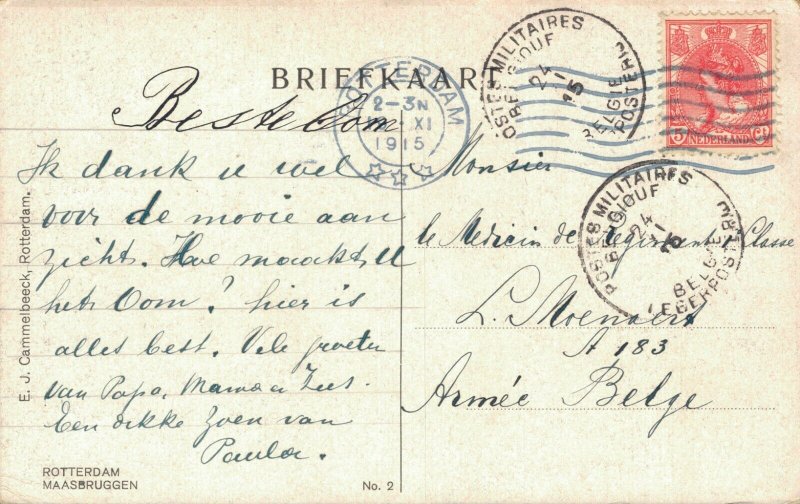 BRIEFKAART
ROTTERDAM
2-3N
XI
1915
POSTES MILITAIRES
BELGIQUE
24
XI
15
BELGIE
LEGERPOSTERIJ
5 Ct
NEDERLAND
Beste Oom
Ik dank u wel
voor de mooie aan
zicht. Hoe maakt U
het Oom? hier is
alles best. Vele groeten
van Papa, Mama en Zus.
Een dikke zoen van
Paula.
Monsier
le Medicin de Regiment 1 Classe
L. Moenaert
A 183
Armée Belge
POSTES MILITAIRES
BELGIQUE
24
XI
15
BELGIE
LEGERPOSTERIJ
E. J. Cammelbeeck, Rotterdam.
ROTTERDAM
MAASBRUGGEN
No. 2